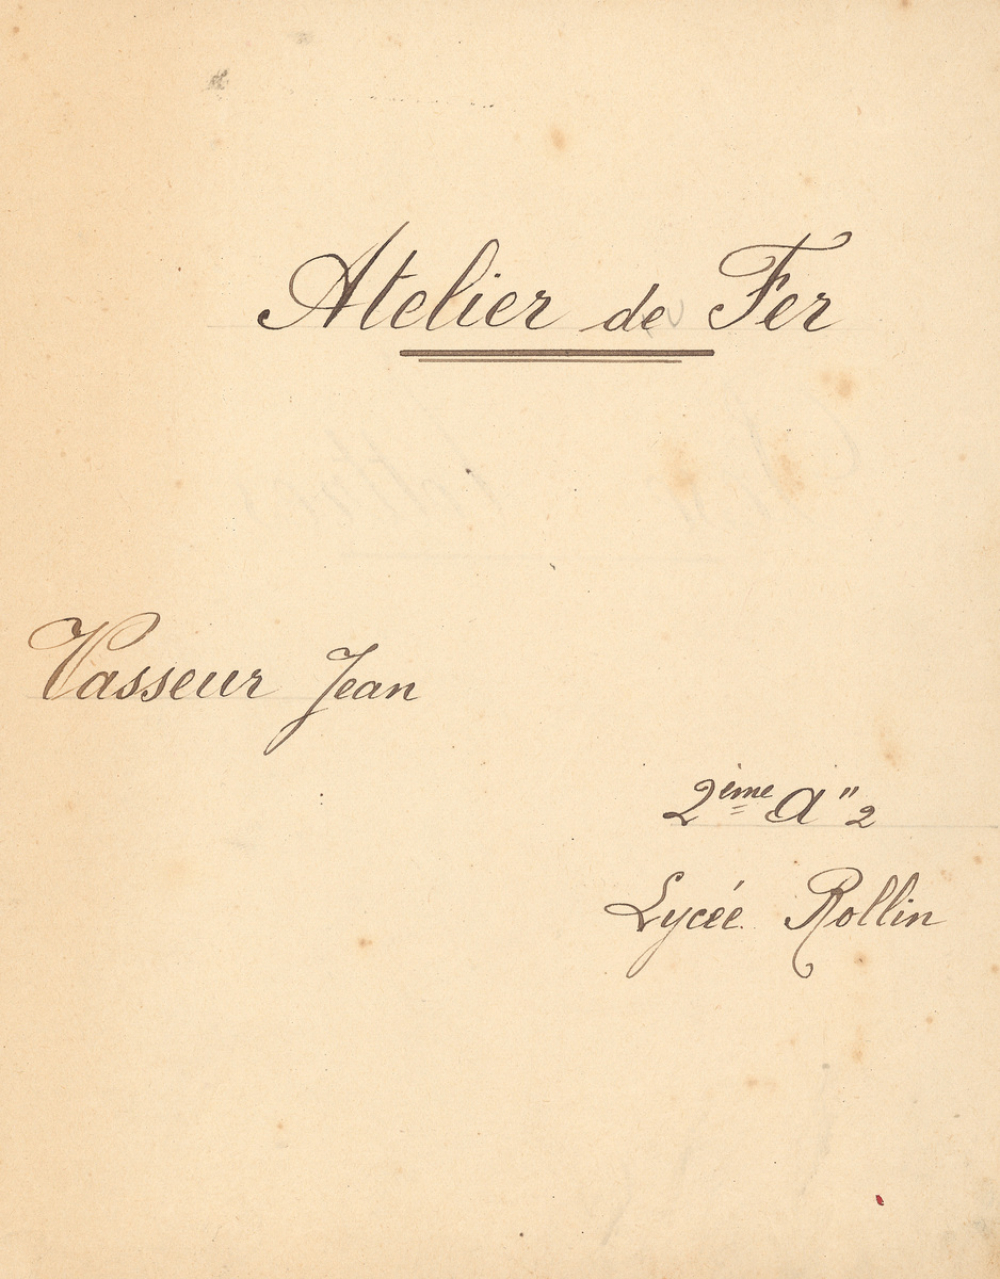 Atelier de Fer
Vasseur Jean
2ème A" 2
Lycée Rollin